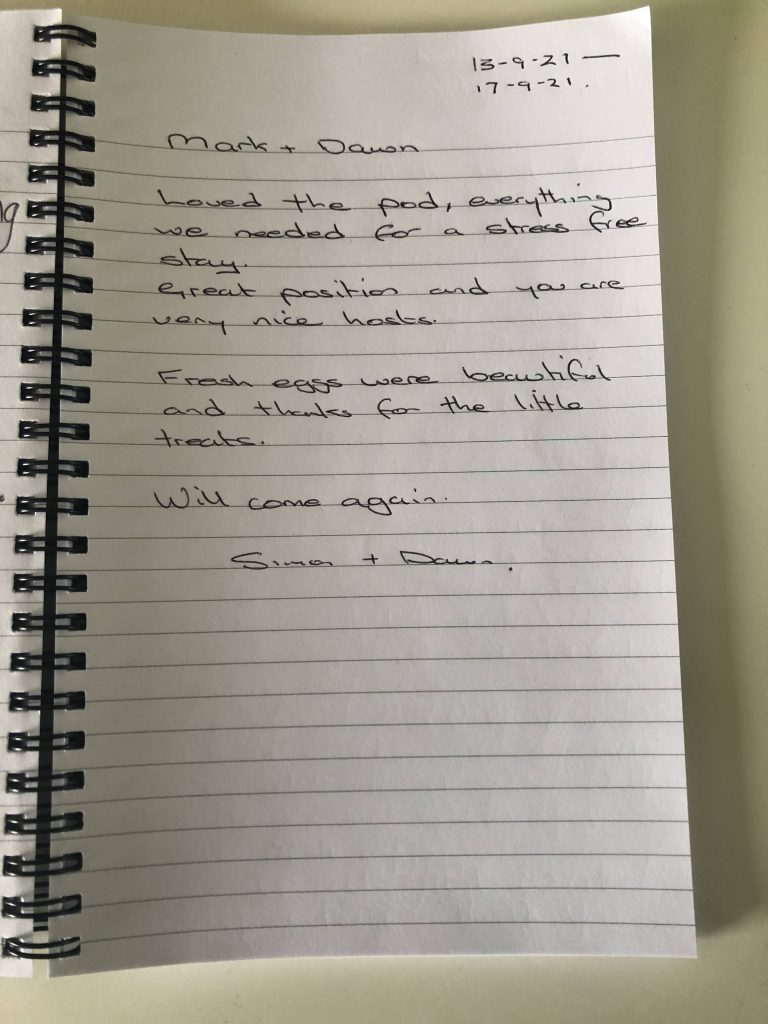 13-9-21 —
17-9-21.
Mark + Dawn
Loved the pod, everything
we needed for a stress free
stay.
Great position and you are
very nice hosts.
Fresh eggs were beautiful
and thanks for the little
treats.
Will come again.
Simon + Dawn.